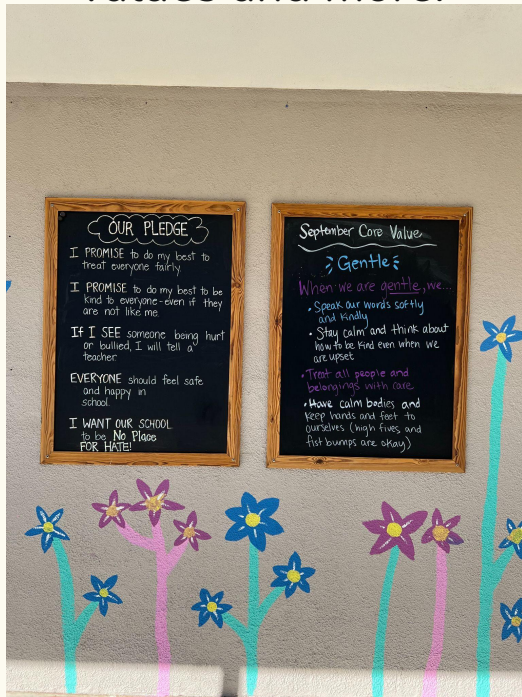 OUR PLEDGE
I PROMISE to do my best to
treat everyone fairly.
I PROMISE to do my best to be
kind to everyone-even if they
are not like me.
If I SEE someone being hurt
or bullied, I will tell a
teacher.
EVERYONE should feel safe
and happy in
school.
I WANT OUR SCHOOL
to be No Place
FOR HATE!
September Core Value
Gentle
When we are gentle, we...
• Speak our words softly
and kindly
• Stay calm and think about
how to be kind even when we
are upset
• Treat all people and
belongings with care
• Have calm bodies and
keep hands and feet to
ourselves (high fives, and
fist bumps are okay)